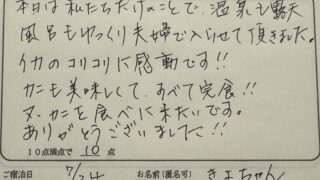 本日は私たちだけのことで、温泉も露天
風呂もゆっくり夫婦で入らせて頂きました。
イカのコリコリに感動です!!
カニも美味しくて、すべて完食!!
又、カニを食べに来たいです。
ありがとうございました!!
10点満点で 10 点
ご宿泊日 7/24 お名前(匿名可) きよちゃん